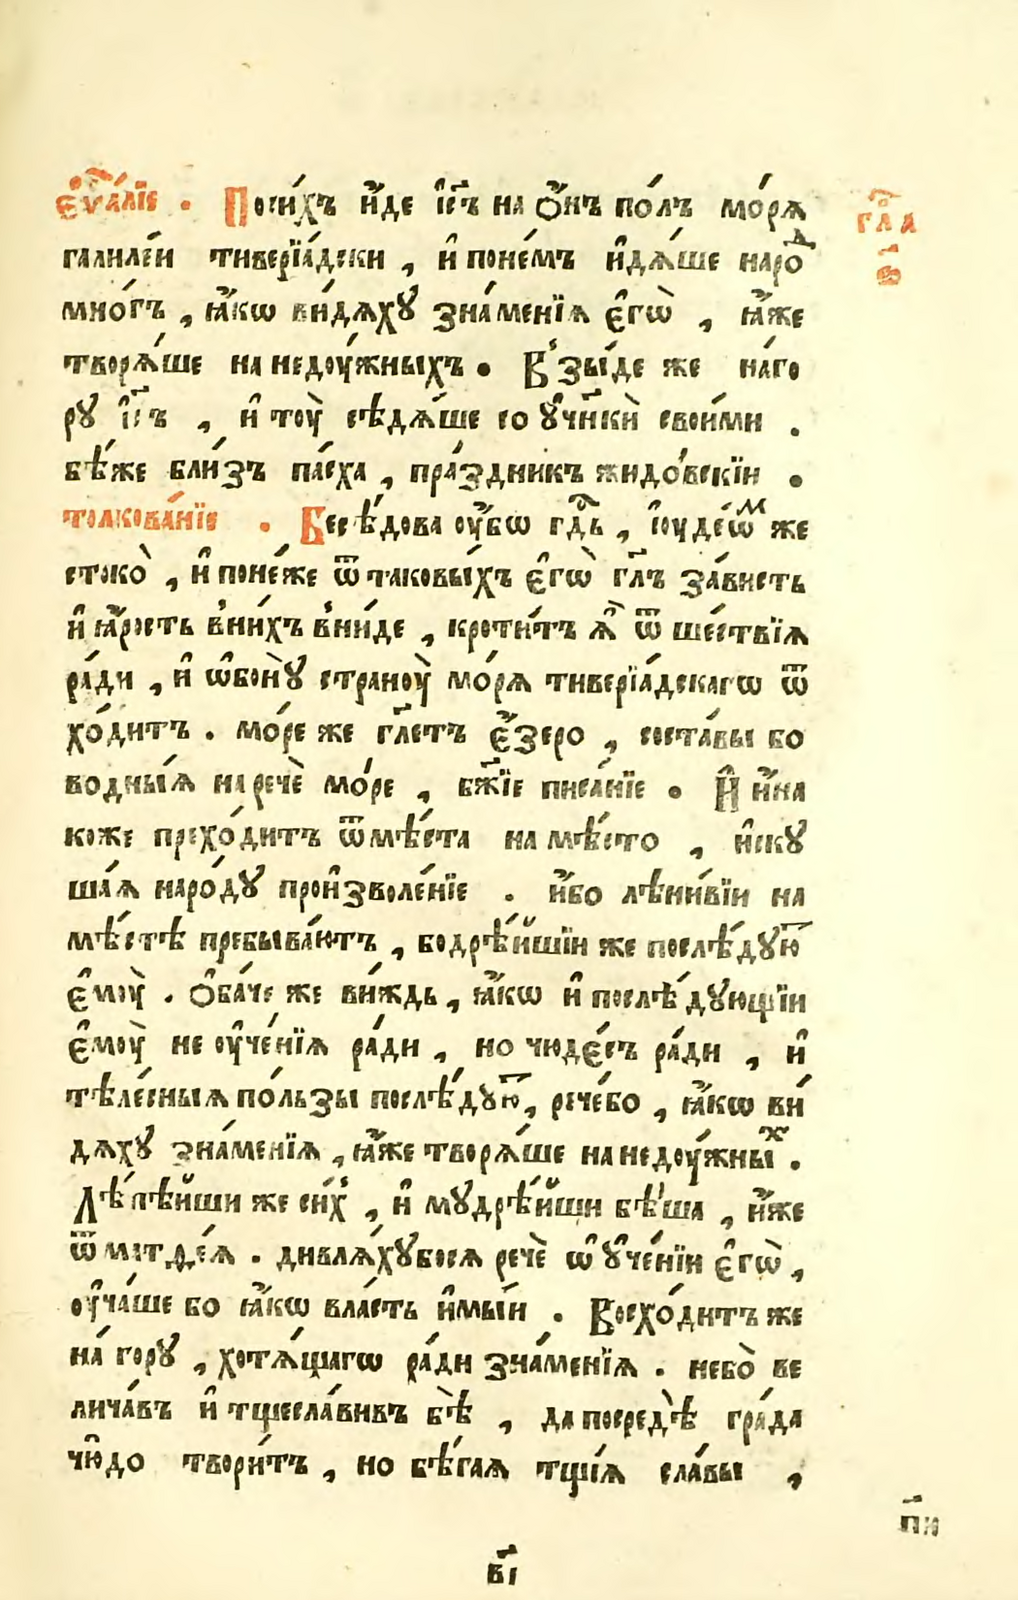 є҆ѵⷢ҇а́лїе . Поси́хъ и҆́де і҆с҃ъ на ѻ҆́нъ по́лъ мо́рѧ
гл҃а
в҃і
галиле́и тиверїа́дски , и҆ поне́мъ и҆дѧ́ше наро́ⷣ
мно́гъ , ꙗ҆́кѡ ви́дѧхꙋ зна́менїѧ є҆гѡ̀ , ꙗ҆́же
творѧ́ше на недоу́жныхъ . В̾зы́де же наго
рꙋ̀ і҆с҃ъ , и҆ тоу̀ сѣдѧ́ше со ᲂу҆чн҃кѝ свои́ми .
бѣ́же бли́зъ па́сха , пра́здникъ жидо́вскїи .
толкова́нїе . Бесѣ́дова оу҆́бѡ гдⷭ҇ь , і҆ꙋде́ѡⷨ же
стоко̀ , и҆ поне́же ѿ таковы́хъ є҆гѡ̀ гл҃ъ за́висть
и҆ ꙗ҆́рость в̾ни́хъ в̾ни́де , кроти́тъ ѧ҆̀ ѿ ше́ствїѧ
ра́ди , и҆ ѡ҆бо́нꙋ страноу̀ мо́рѧ тиверїа́дскагѡ ѿ
хо́дитъ . мо́ре же гл҃етъ є҆́зеро , соста́вы бо
водны́ѧ наречѐ мо́ре , бж҃їе писа́нїе . И҆ и҆́на
коже прехо́дитъ ѿмѣ́ста на мѣ́сто , и҆скꙋ
ша́ѧ наро́дꙋ про́изволе́нїе . и҆́бо лѣни́вїи на
мѣ́стѣ пребыва́ютъ , бодрѣ́йшїи же послѣ́дꙋюⷮ
є҆моу̀ . Ѻ҆ба́че же ви́ждь , ꙗ҆́кѡ и҆ послѣ́дꙋющїи
є҆моу̀ не оу҆че́нїѧ ра́ди , но чюде́съ ра́ди , и҆
тѣле́сныѧ по́льзы послѣ́дꙋюⷮ , рече́бо , ꙗ҆́кѡ ви́
дѧхꙋ зна́менїѧ , ꙗ҆́же творѧ́ше на недоу́жныⷯ .
Лѣ́пѣйши же си́х̾ , и҆ мꙋдрѣ́йши бѣ́ша , и҆́же
ѿ матѳе́ѧ . дивлѧ́хꙋбосѧ речѐ ѡ҆ ᲂу҆че́нїи є҆гѡ̀ ,
оу҆ча́ше бо ꙗ҆́кѡ вла́сть и҆мы́и . Восхо́дитъ же
на́ горꙋ , хотѧ́щагѡ ра́ди зна́менїѧ . небо̀ ве
лича́въ и҆ тщесла́вивъ бѣ̀ , да посредѣ̀ гра́да
чю҆́до твори́тъ , но бѣ́гаѧ тщїѧ́ сла́вы ,
пи
в҃і